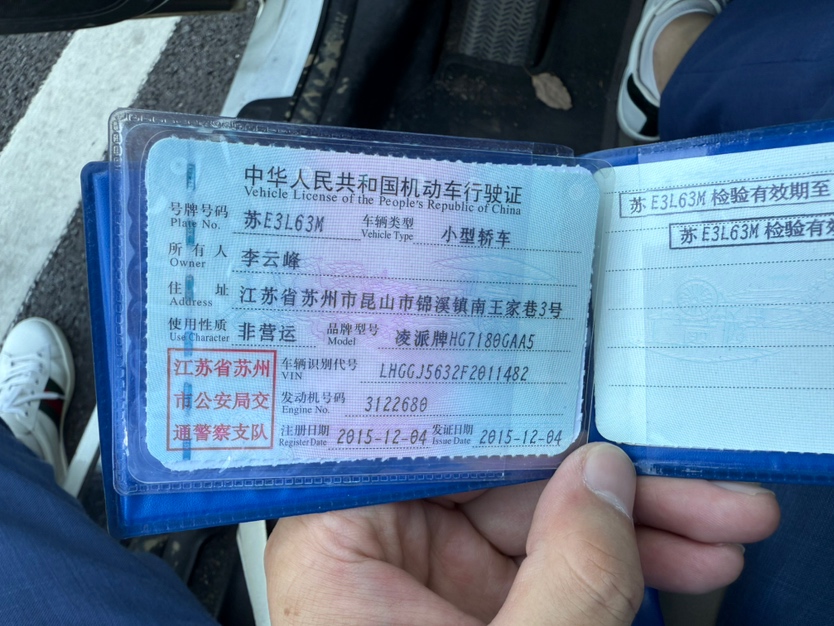 中华人民共和国机动车行驶证
Vehicle License of the People's Republic of China
号牌号码 苏E3L63M 车辆类型 小型轿车
Plate No. Vehicle Type
所有人 李云峰
Owner
住址 江苏省苏州市昆山市锦溪镇南王家巷3号
Address
使用性质 非营运 品牌型号 凌派牌HG7180GAA5
Use Character Model
江苏省苏州
市公安局交
通警察支队
车辆识别代号 LHGGJ5632F2011482
VIN
发动机号码 3122680
Engine No.
注册日期 2015-12-04 发证日期 2015-12-04
Register Date Issue Date
苏E3L63M 检验有效期至
苏E3L63M 检验有效